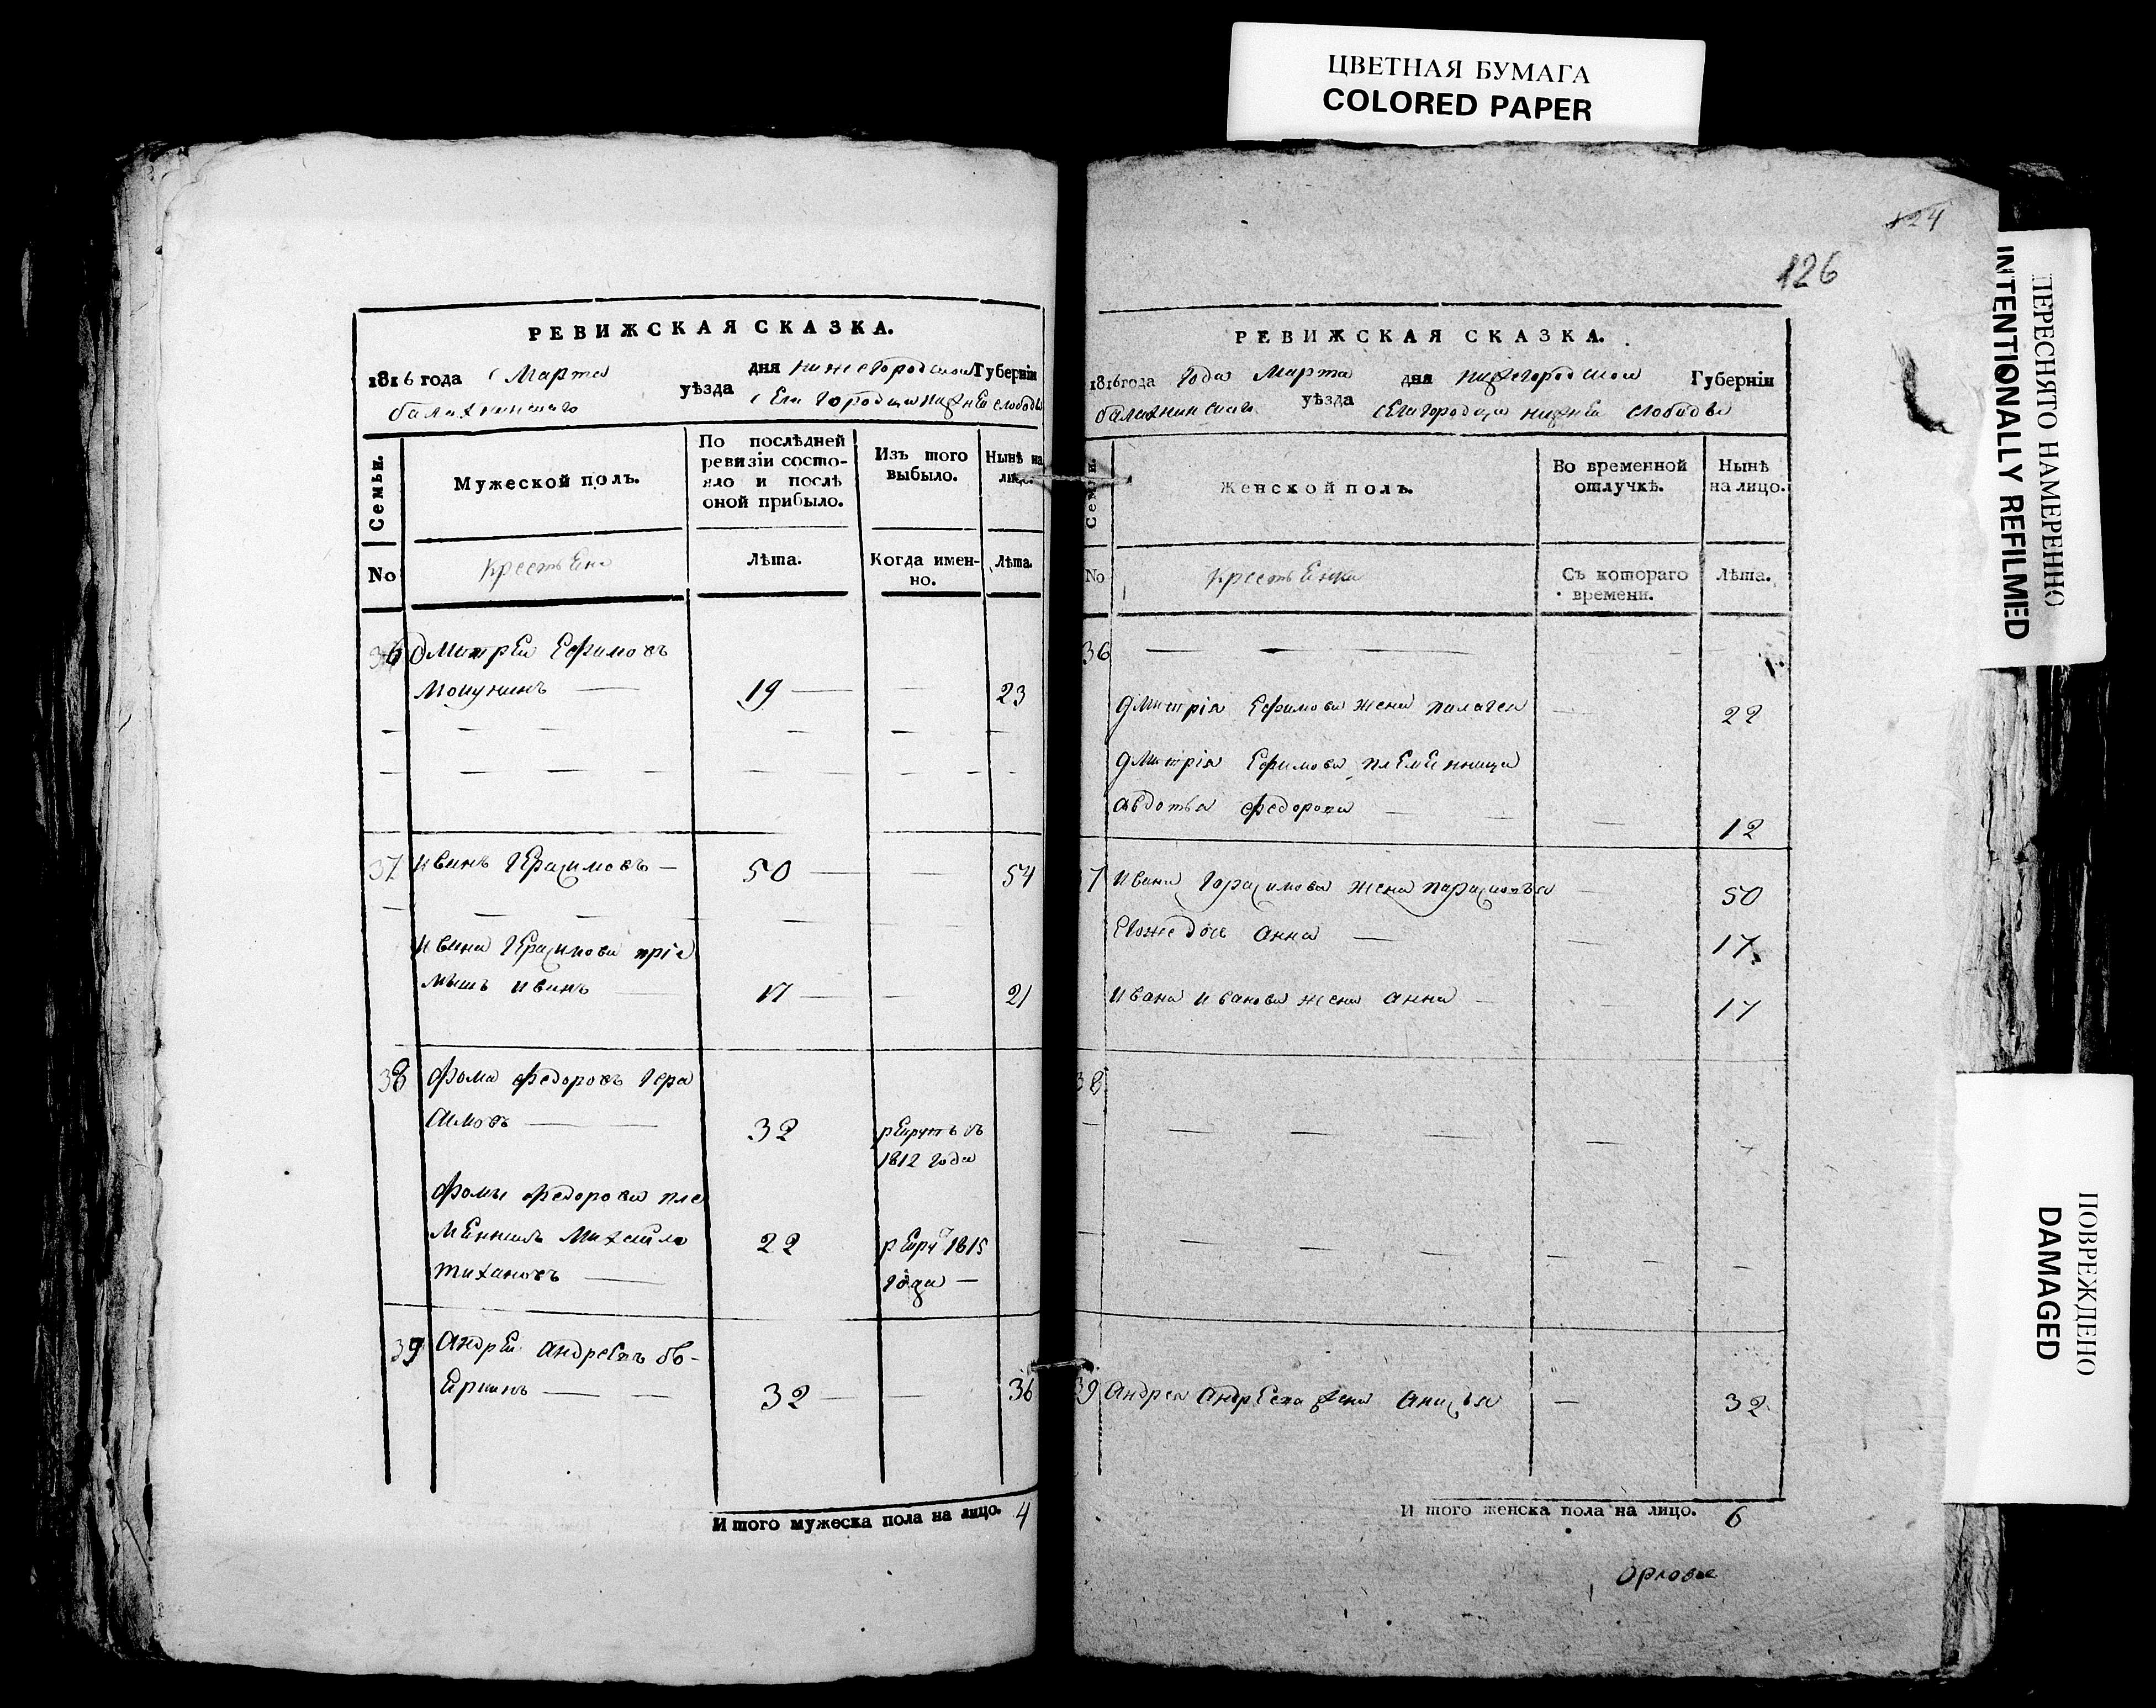 ЦВЕТНАЯ БУМАГА
COLORED PAPER
ПЕРЕСНЯТО НАМЕРЕННО
INTENTIONALLY REFILMED
ПОВРЕЖДЕНО
DAMAGED
РЕВИЖСКАЯ СКАЗКА.
1816 года Марта дня нижегородской Губерніи
балахнинскаго уѣзда села городца нижней слободы
Семьи.
Мужеской полъ.
По послѣдней
ревизіи состо-
яло и послѣ
оной прибыло.
Изъ того
выбыло.
Нынѣ на
лицо.
No
крестьяне
Лѣта.
Когда имен-
но.
Лѣта.
36 Дмитреи Ефимовъ
19 23
37 иванъ герасимовъ 50 54
ивана герасимова прiе
мышъ иванъ 17 21
38 фома федоровъ гера
симовъ 32 рекрутъ въ
1812 года
фомы федорова пле
менникъ михаила 22 рекру 1815
тихановъ года
39 Андреи андреевъ
32 36
И того мужеска пола на лицо. 4
124
126
РЕВИЖСКАЯ СКАЗКА.
1816 года года Марта дня нижегородской Губерніи
балахнинскаго уѣзда села городца нижней слободы
Семьи.
Женской полъ.
Во временной
отлучкѣ.
Нынѣ
на лицо.
No
крестьянки
Съ котораго
времени.
Лѣта.
36
дмитрія Ефимова жена палагея 22
дмитрія Ефимова племенница
авдотья федорова 12
7 ивана герасимова жена парасковья 50
Евоже дочь анна 17
ивана иванова жена анна 17
38
39 андрея андреева жена анисья 32
И того женска пола на лицо. 6